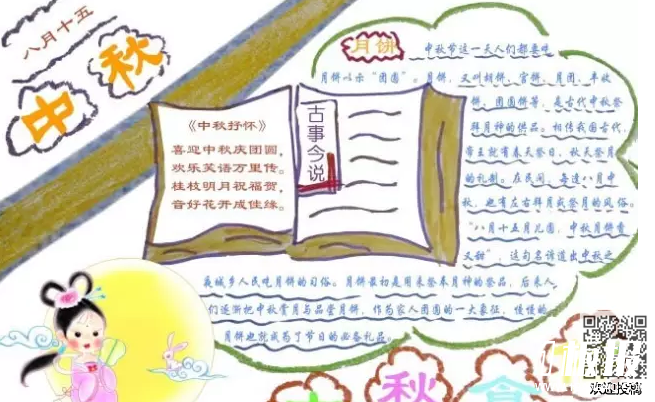 八月十五
中秋
《中秋抒怀》
喜迎中秋庆团圆，
欢乐笑语万里传。
桂枝明月祝福贺，
音好花开成佳缘。
古事今说
月饼
中秋节这一天人们都要吃
月饼以示“团圆”。月饼，又叫胡饼、宫饼、月团、丰收
饼、团圆饼等，是古代中秋祭
拜月神的供品。相传我国古代，
帝王就有春天祭日，秋天祭月
的礼制。在民间，每逢八月中
秋，也有左右拜月或祭月的风俗。
“八月十五月儿圆，中秋月饼香
又甜”，这句名谚道出中秋之
夜城乡人民吃月饼的习俗。月饼最初是用来祭奉月神的祭品，后来人
们逐渐把中秋赏月与品尝月饼，作为家人团圆的一大象征，慢慢的
月饼也就成为了节日的必备礼品。
秋
欢迎投稿